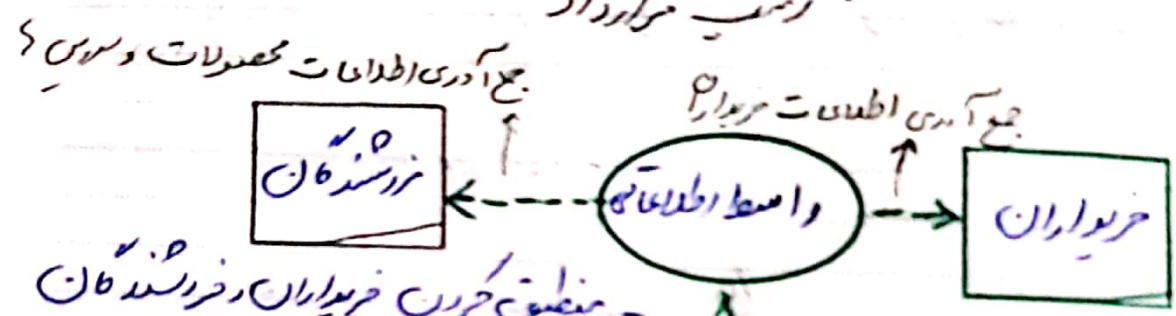 قرارداد
جمع آوری اطلاعات محصولات و سرویس ها
جمع آوری اطلاعات خریدار
فروشندگان
واسط اطلاعاتی
خریداران
منطبق کردن خریداران و فروشندگان